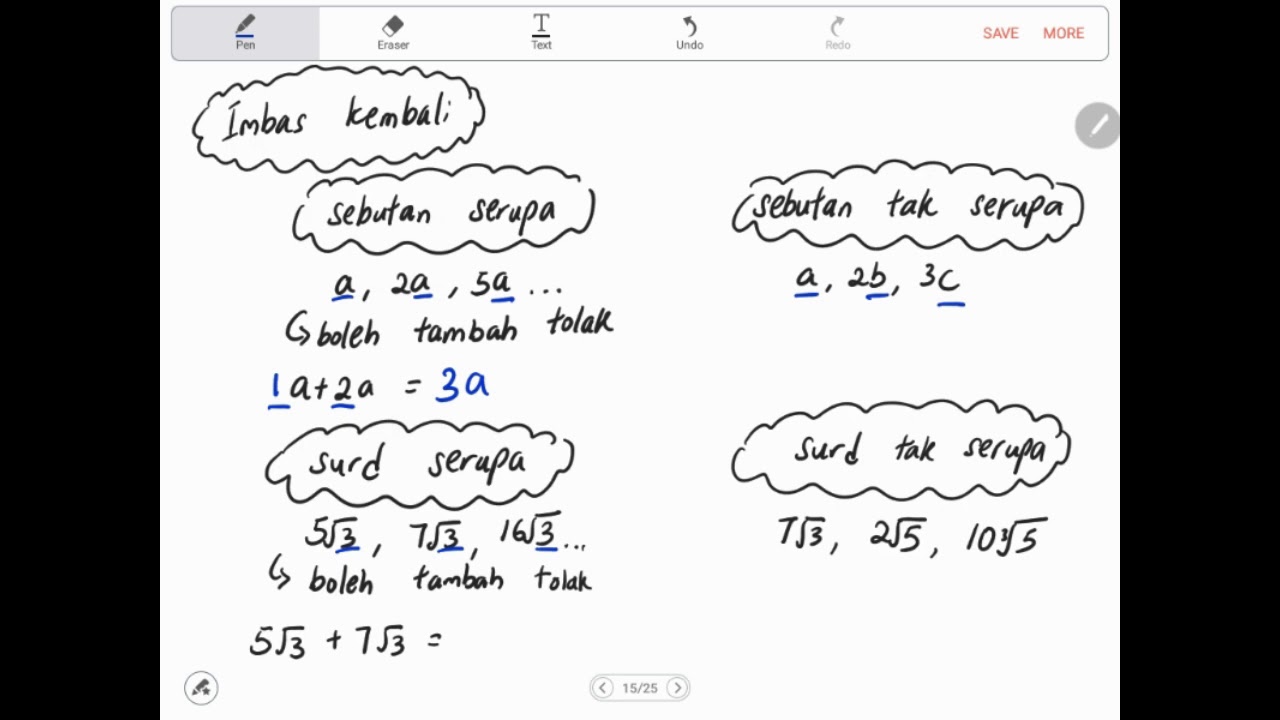 Pen Eraser Text Undo Redo SAVE MORE
Imbas kembali
sebutan serupa
a, 2a, 5a ...
boleh tambah tolak
1a+2a = 3a
sebutan tak serupa
a, 2b, 3c
surd serupa
5√3, 7√3, 16√3...
boleh tambah tolak
5√3 + 7√3 =
surd tak serupa
7√3, 2√5, 10∛5
15/25